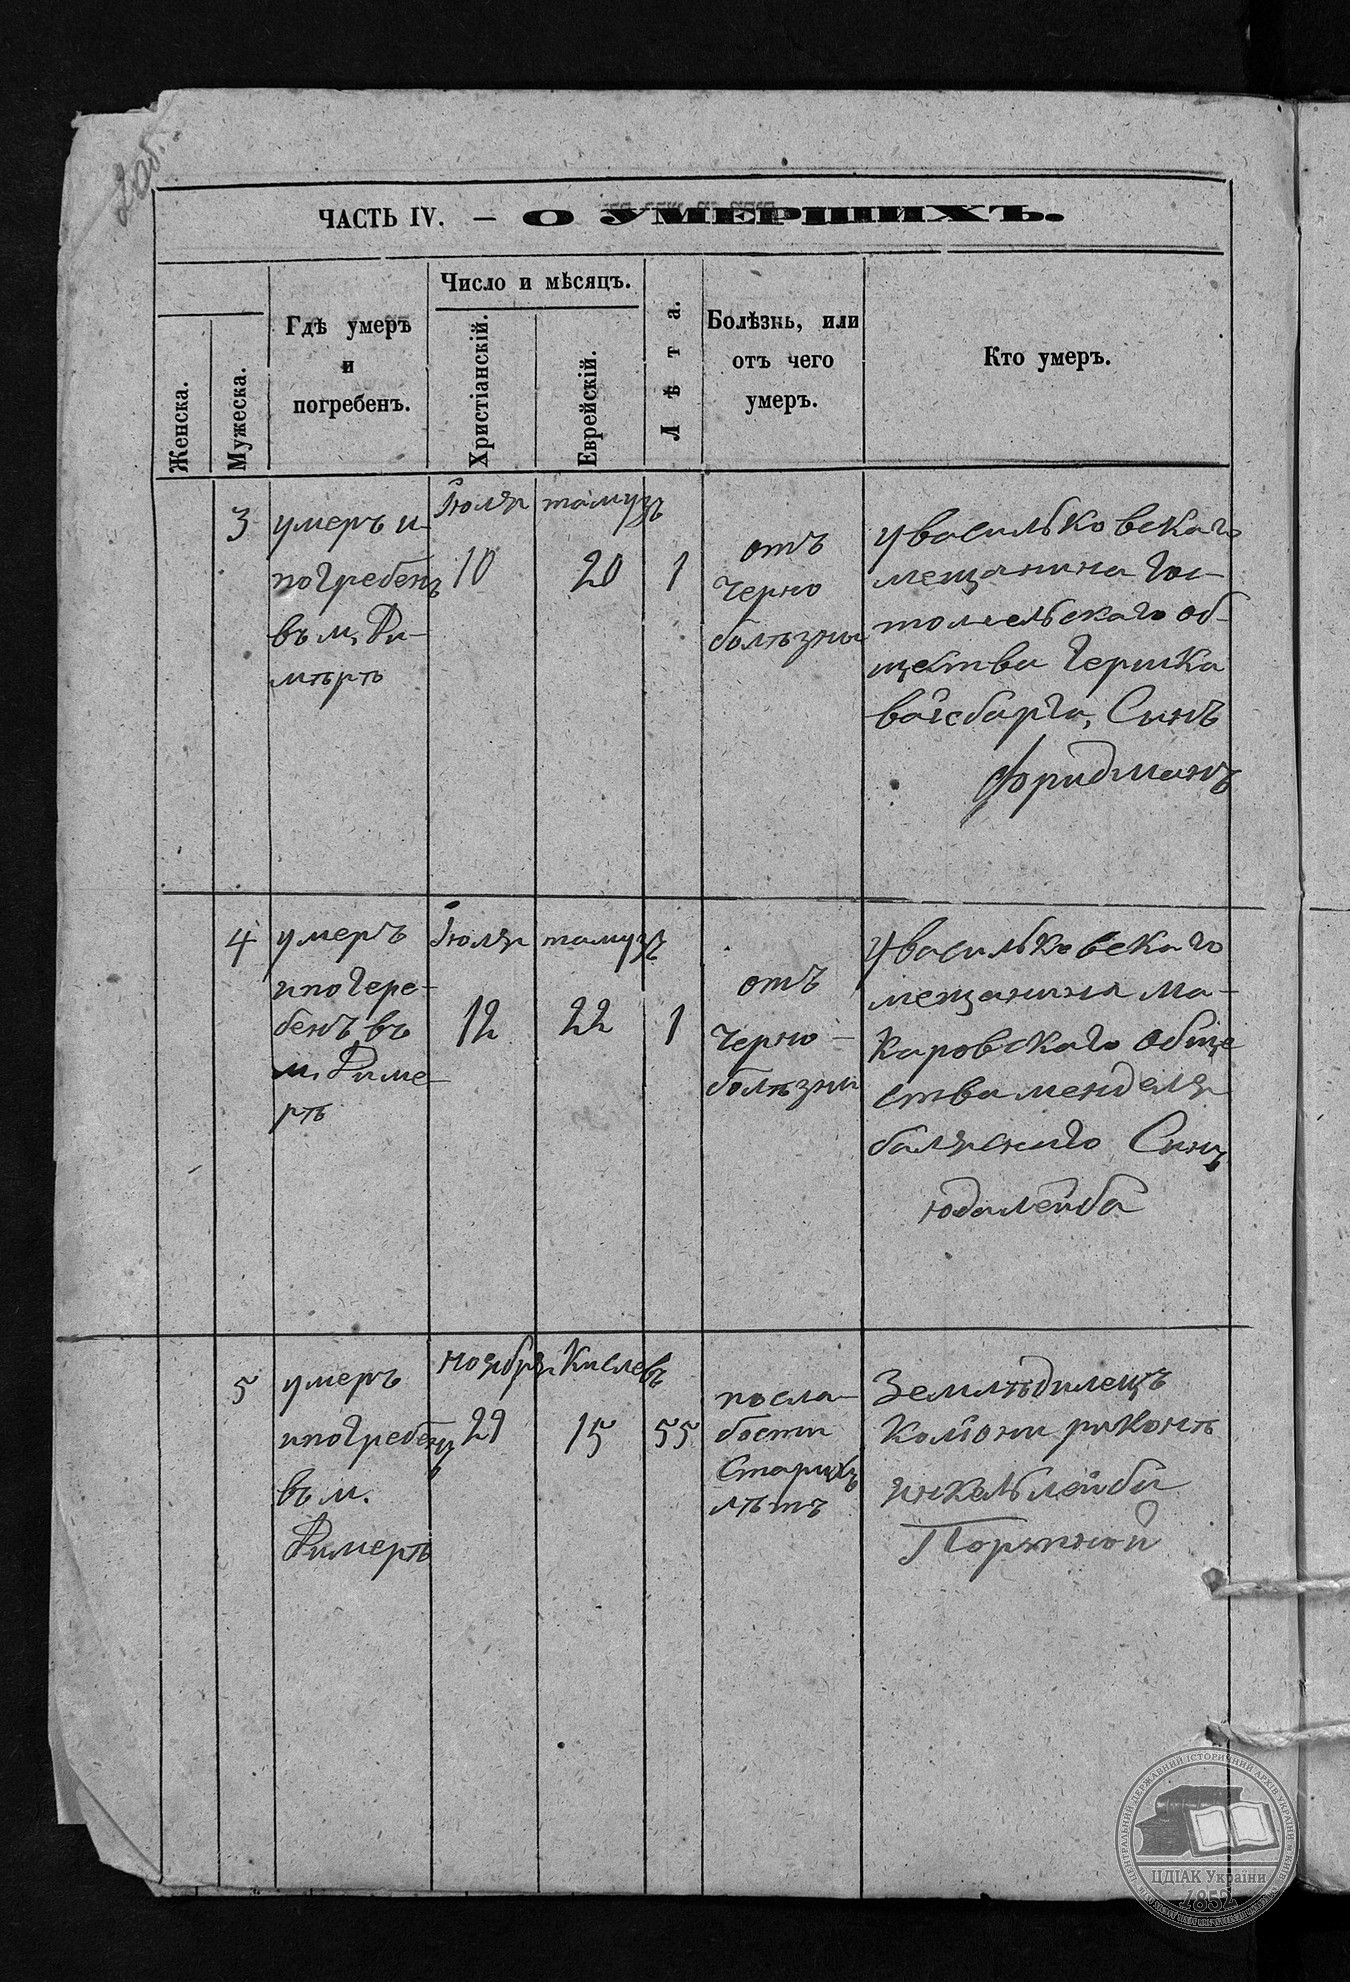 20об.
ЧАСТЬ IV. — О УМЕРШИХЪ.
Женска.
Мужеска.
Гдѣ умеръ
и
погребенъ.
Число и мѣсяцъ.
Христіанскій.
Еврейскій.
Лѣта.
Болѣзнь, или
отъ чего
умеръ.
Кто умеръ.
3
умеръ и
погребенъ
въ м. Ди-
мѣрѣ
Іюля
10
тамузъ
20
1
отъ
черно
болѣзни
увасильковского
мещанина Гос-
томельского об-
щества Гершка
вайсбарга, Сынъ
Фридманъ
4
умеръ
ипогере-
бенъ въ
м. Диме-
рѣ
Іюля
12
тамузъ
22
1
отъ
черно-
болѣзни
увасильковскаго
мещанина ма-
каровского обще
ства менделя
балярского Сынъ
юдалейба
5
умеръ
ипогребенъ
въ м.
Димерѣ
ноября
29
Кислевъ
15
55
посла-
бости
Старихъ
лѣтъ
Земледилецъ
Колони
лейби
Портной
ЦЕНТРАЛЬНИЙ ДЕРЖАВНИЙ ІСТОРИЧНИЙ АРХІВ УКРАЇНИ, М.КИЇВ
ЦДІАК України
1852